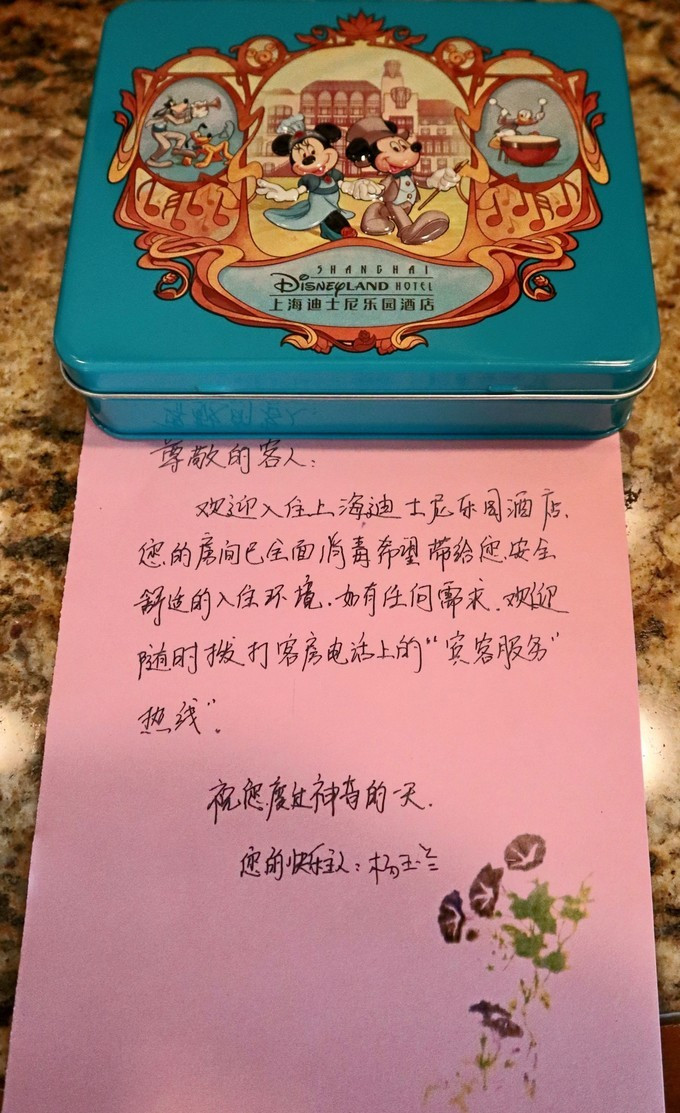 SHANGHAI
Disneyland HOTEL
上海迪士尼乐园酒店
尊敬的客人：
欢迎入住上海迪士尼乐园酒店.
您的房间已全面消毒希望带给您安全
舒适的入住环境.如有任何需求.欢迎
随时拨打客房电话上的“宾客服务”
热线”。
祝您度过神奇的一天.
您的快乐主人：杨玉兰